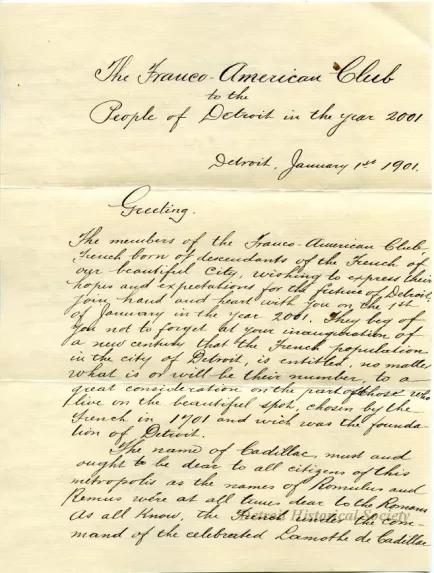 The Franco-American Club
to the
People of Detroit in the year 2001
Detroit, January 1st 1901.
Greeting.
The members of the Franco-American Club
French born of descendants of the French of
our beautiful City, wishing to express their
hopes and expectations for the future of Detroit,
join, hand and heart with you on the 1st
of January in the year 2001. They beg of
you not to forget at your inauguration of
a new century that the French population
in the city of Detroit, is entitled, no matter
what is or will be their number, to a
great consideration on the part of those who
live on the beautiful spot, chosen by the
French in 1701 and wich was the founda-
tion of Detroit.
The name of Cadillac, must and
ought to be dear to all citizens of this
metropolis as the names of Romulus and
Remus were at all times dear to the Romans
As all know, the French under the com-
mand of the celebrated Lamothe de Cadillac
Detroit Historical Society